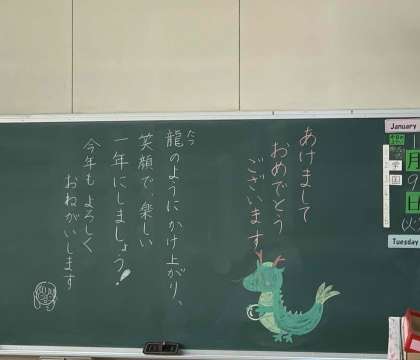 あけまして
おめでとう
ございます
龍のようにかけ上がり、
たつ
笑顔で、楽しい
一年にしましょう!
今年もよろしく
おねがいします
January
1
月
9
日
火
Tuesday
学
国